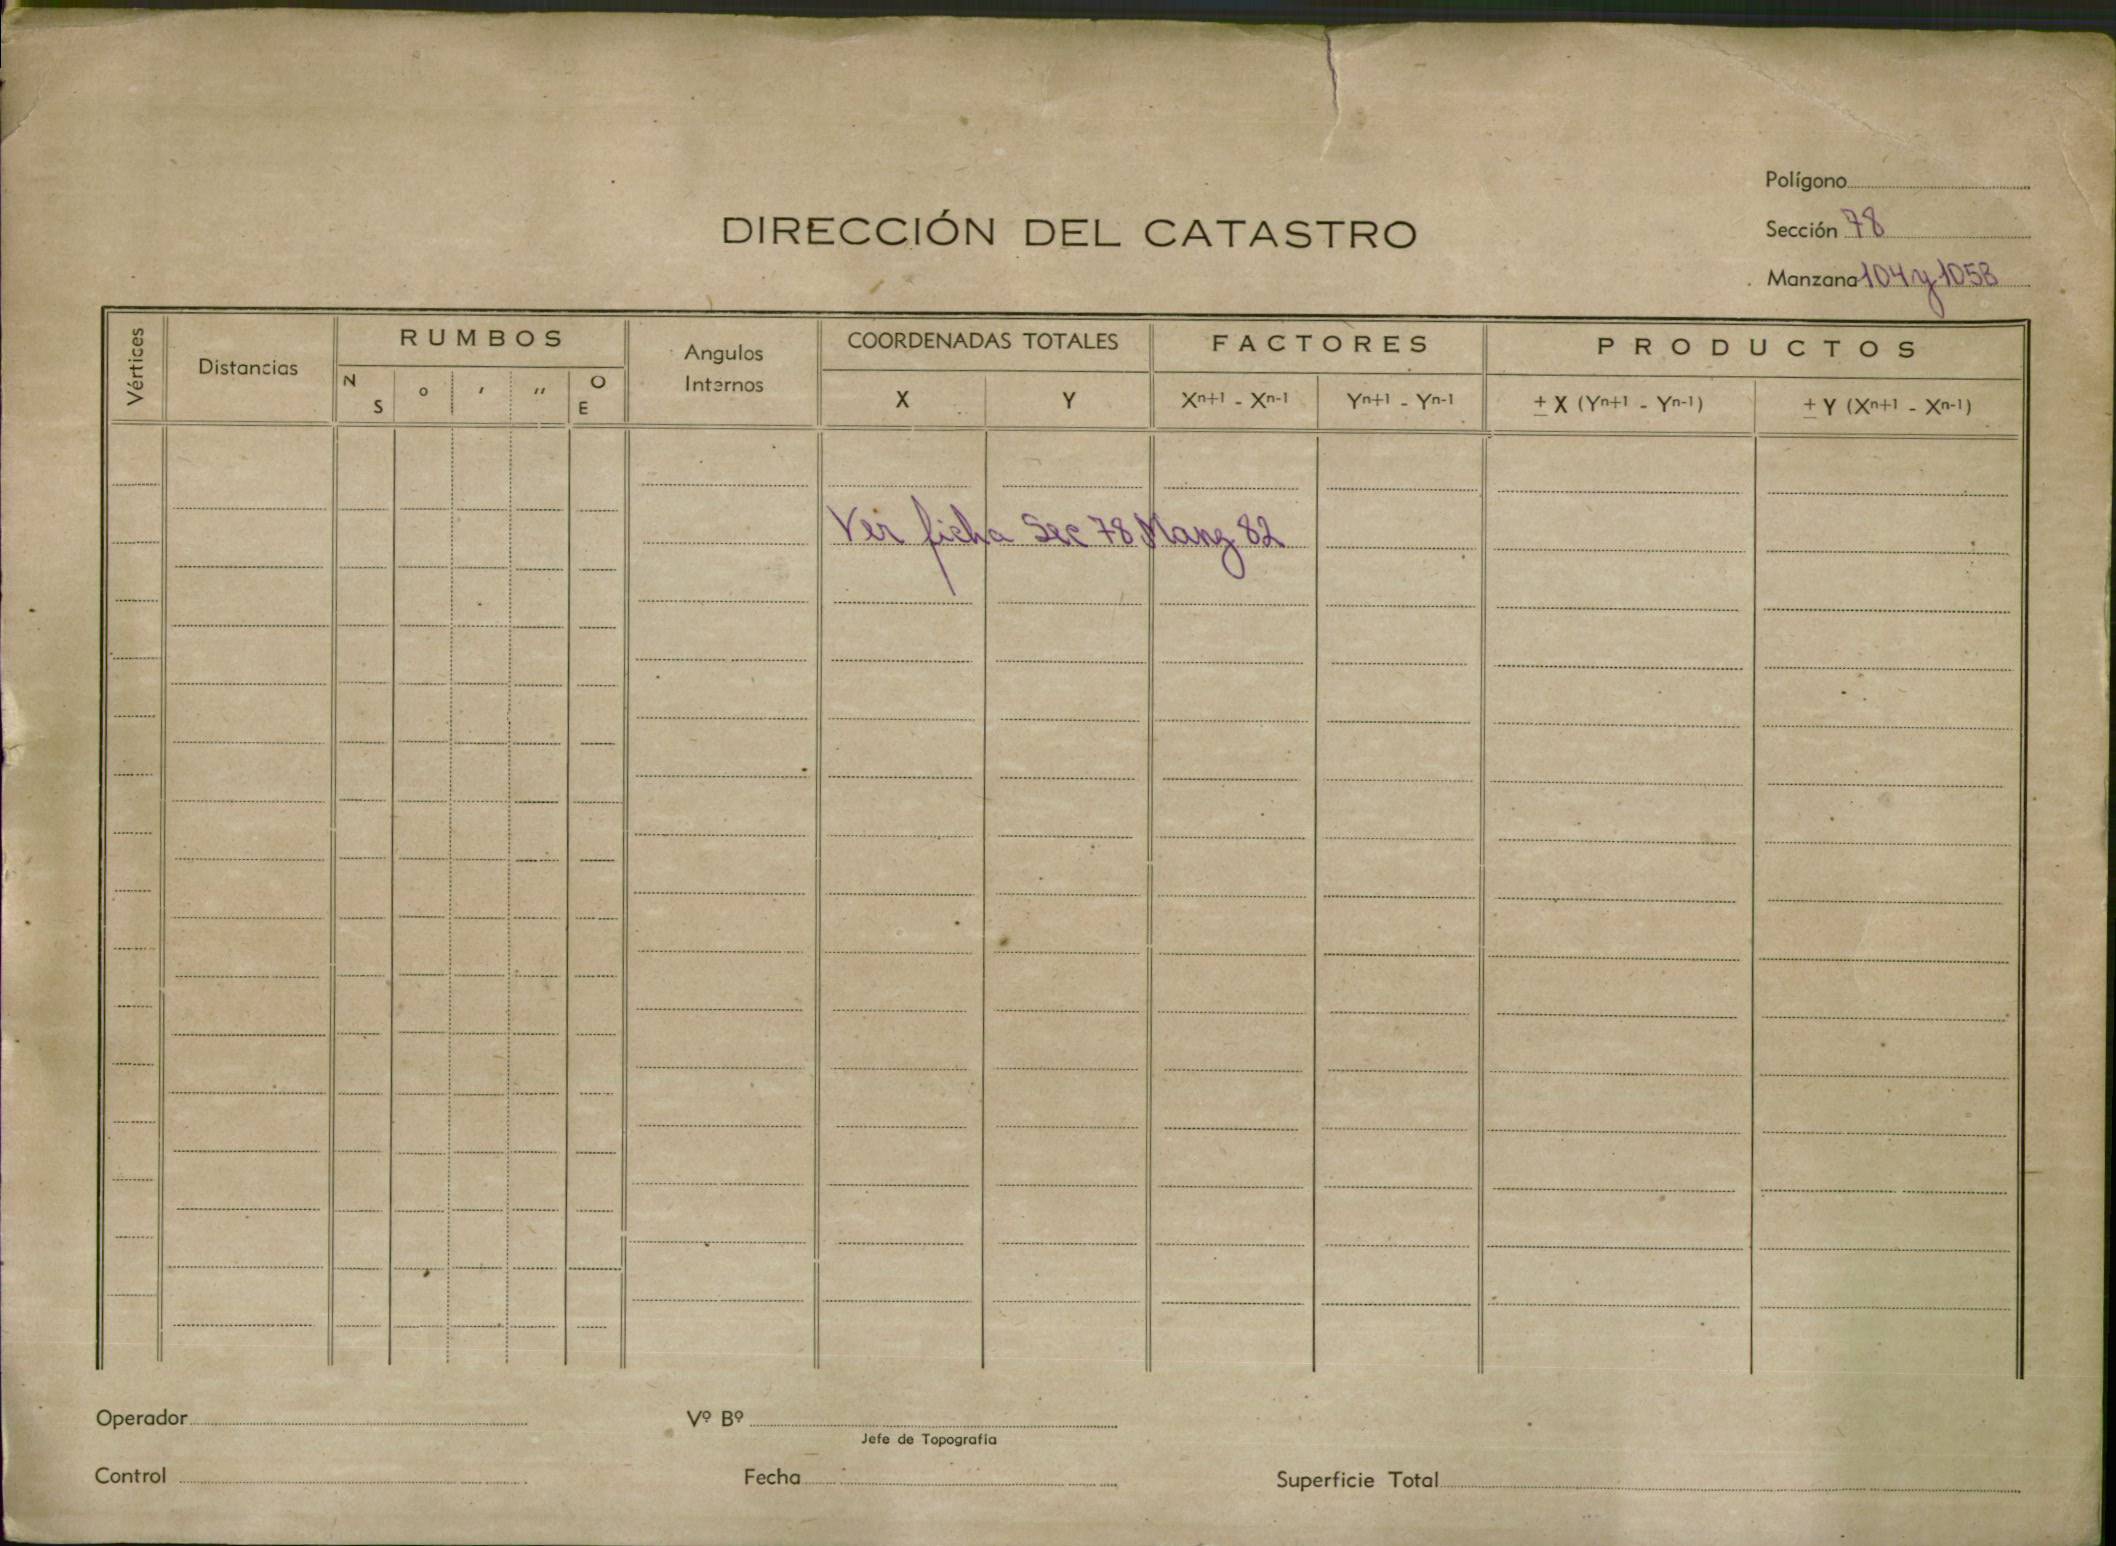 Polígono
DIRECCIÓN DEL CATASTRO
Sección 78
Manzana 104 y 105B
Vértices
Distancias
RUMBOS
N
S
o
'
"
O
E
Angulos
Internos
COORDENADAS TOTALES
X
Y
FACTORES
Xn+1 - Xn-1
Yn+1 - Yn-1
PRODUCTOS
± X (Yn+1 - Yn-1)
± Y (Xn+1 - Xn-1)
Ver ficha Sec 78 Manz 82
Operador
Vº Bº
Jefe de Topografía
Control
Fecha
Superficie Total